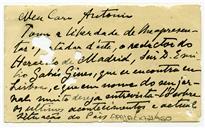 Meu Caro Antonio
Tomo a liberdade de lhe apresen-
tar, portador d'este, o redactor do
Heraldo de Madrid, Snr. D. Emilio
Gabás Gines, que se encontra em
Lisboa, e que em nome do seu jor-
nal muito deseja entrevistal-o sobre
os ultimos acontecimentos e actual
situação do Paiz